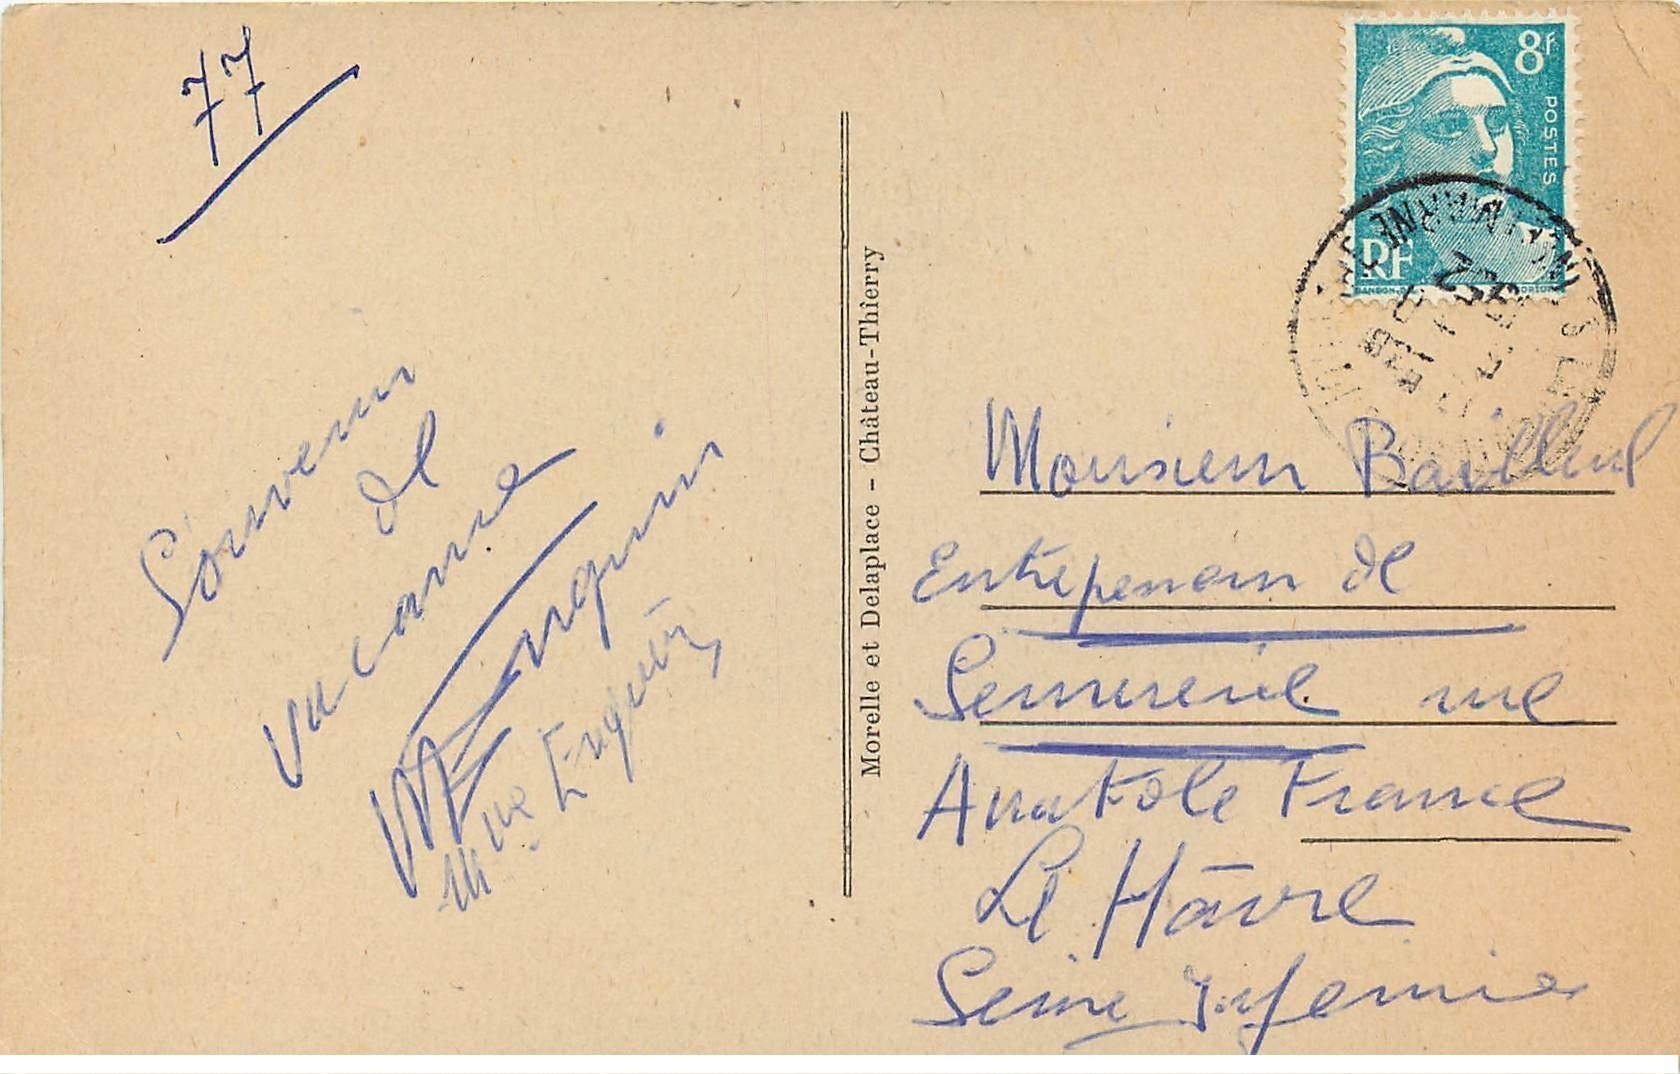 77
Souvenir
de
vacance
Enguin
Mme Enguin
Morelle et Delaplace - Château-Thierry
8f
POSTES
RF
Monsieur Bailleul
Entrepeneur de
Serrurerie rue
Anatole France
Le Hâvre
Seine Inferrie